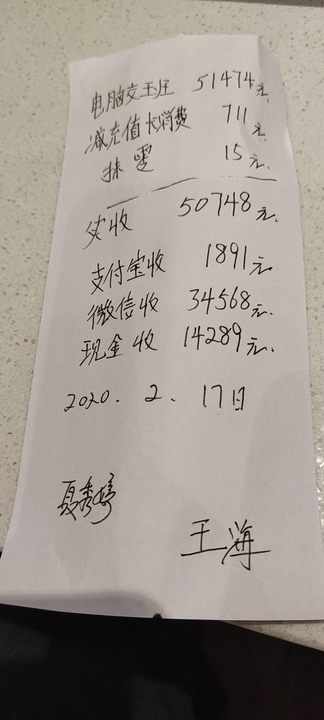 电脑交王班 51474元.
减充值卡消费 711元.
抹零 15元.
实收 50748元.
支付宝收 1891元
微信收 34568元.
现金收 14289元.
2020. 2. 17日
夏秀婷
王海